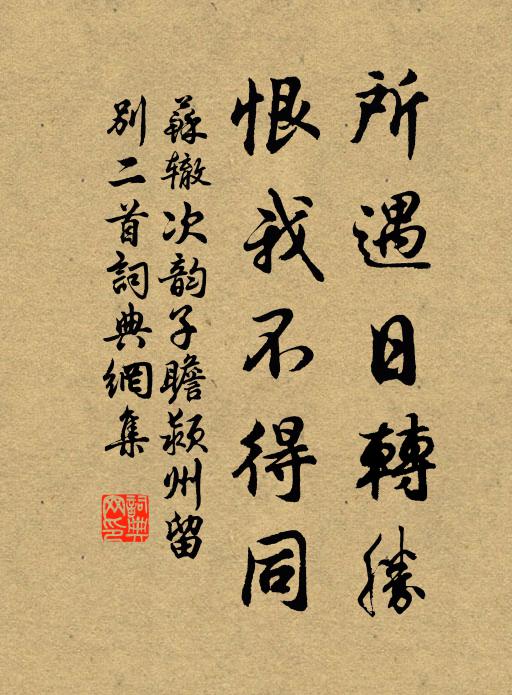 所遇日轉勝
恨我不得同
蘇辙次韵子瞻颍州留
别二首詞典網集
詞典网印